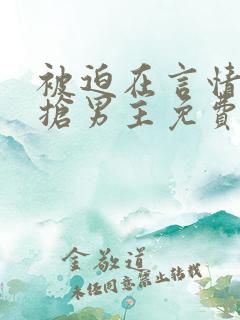 被迫在言情
搶男主免費
金敬道
未经同意禁止转载